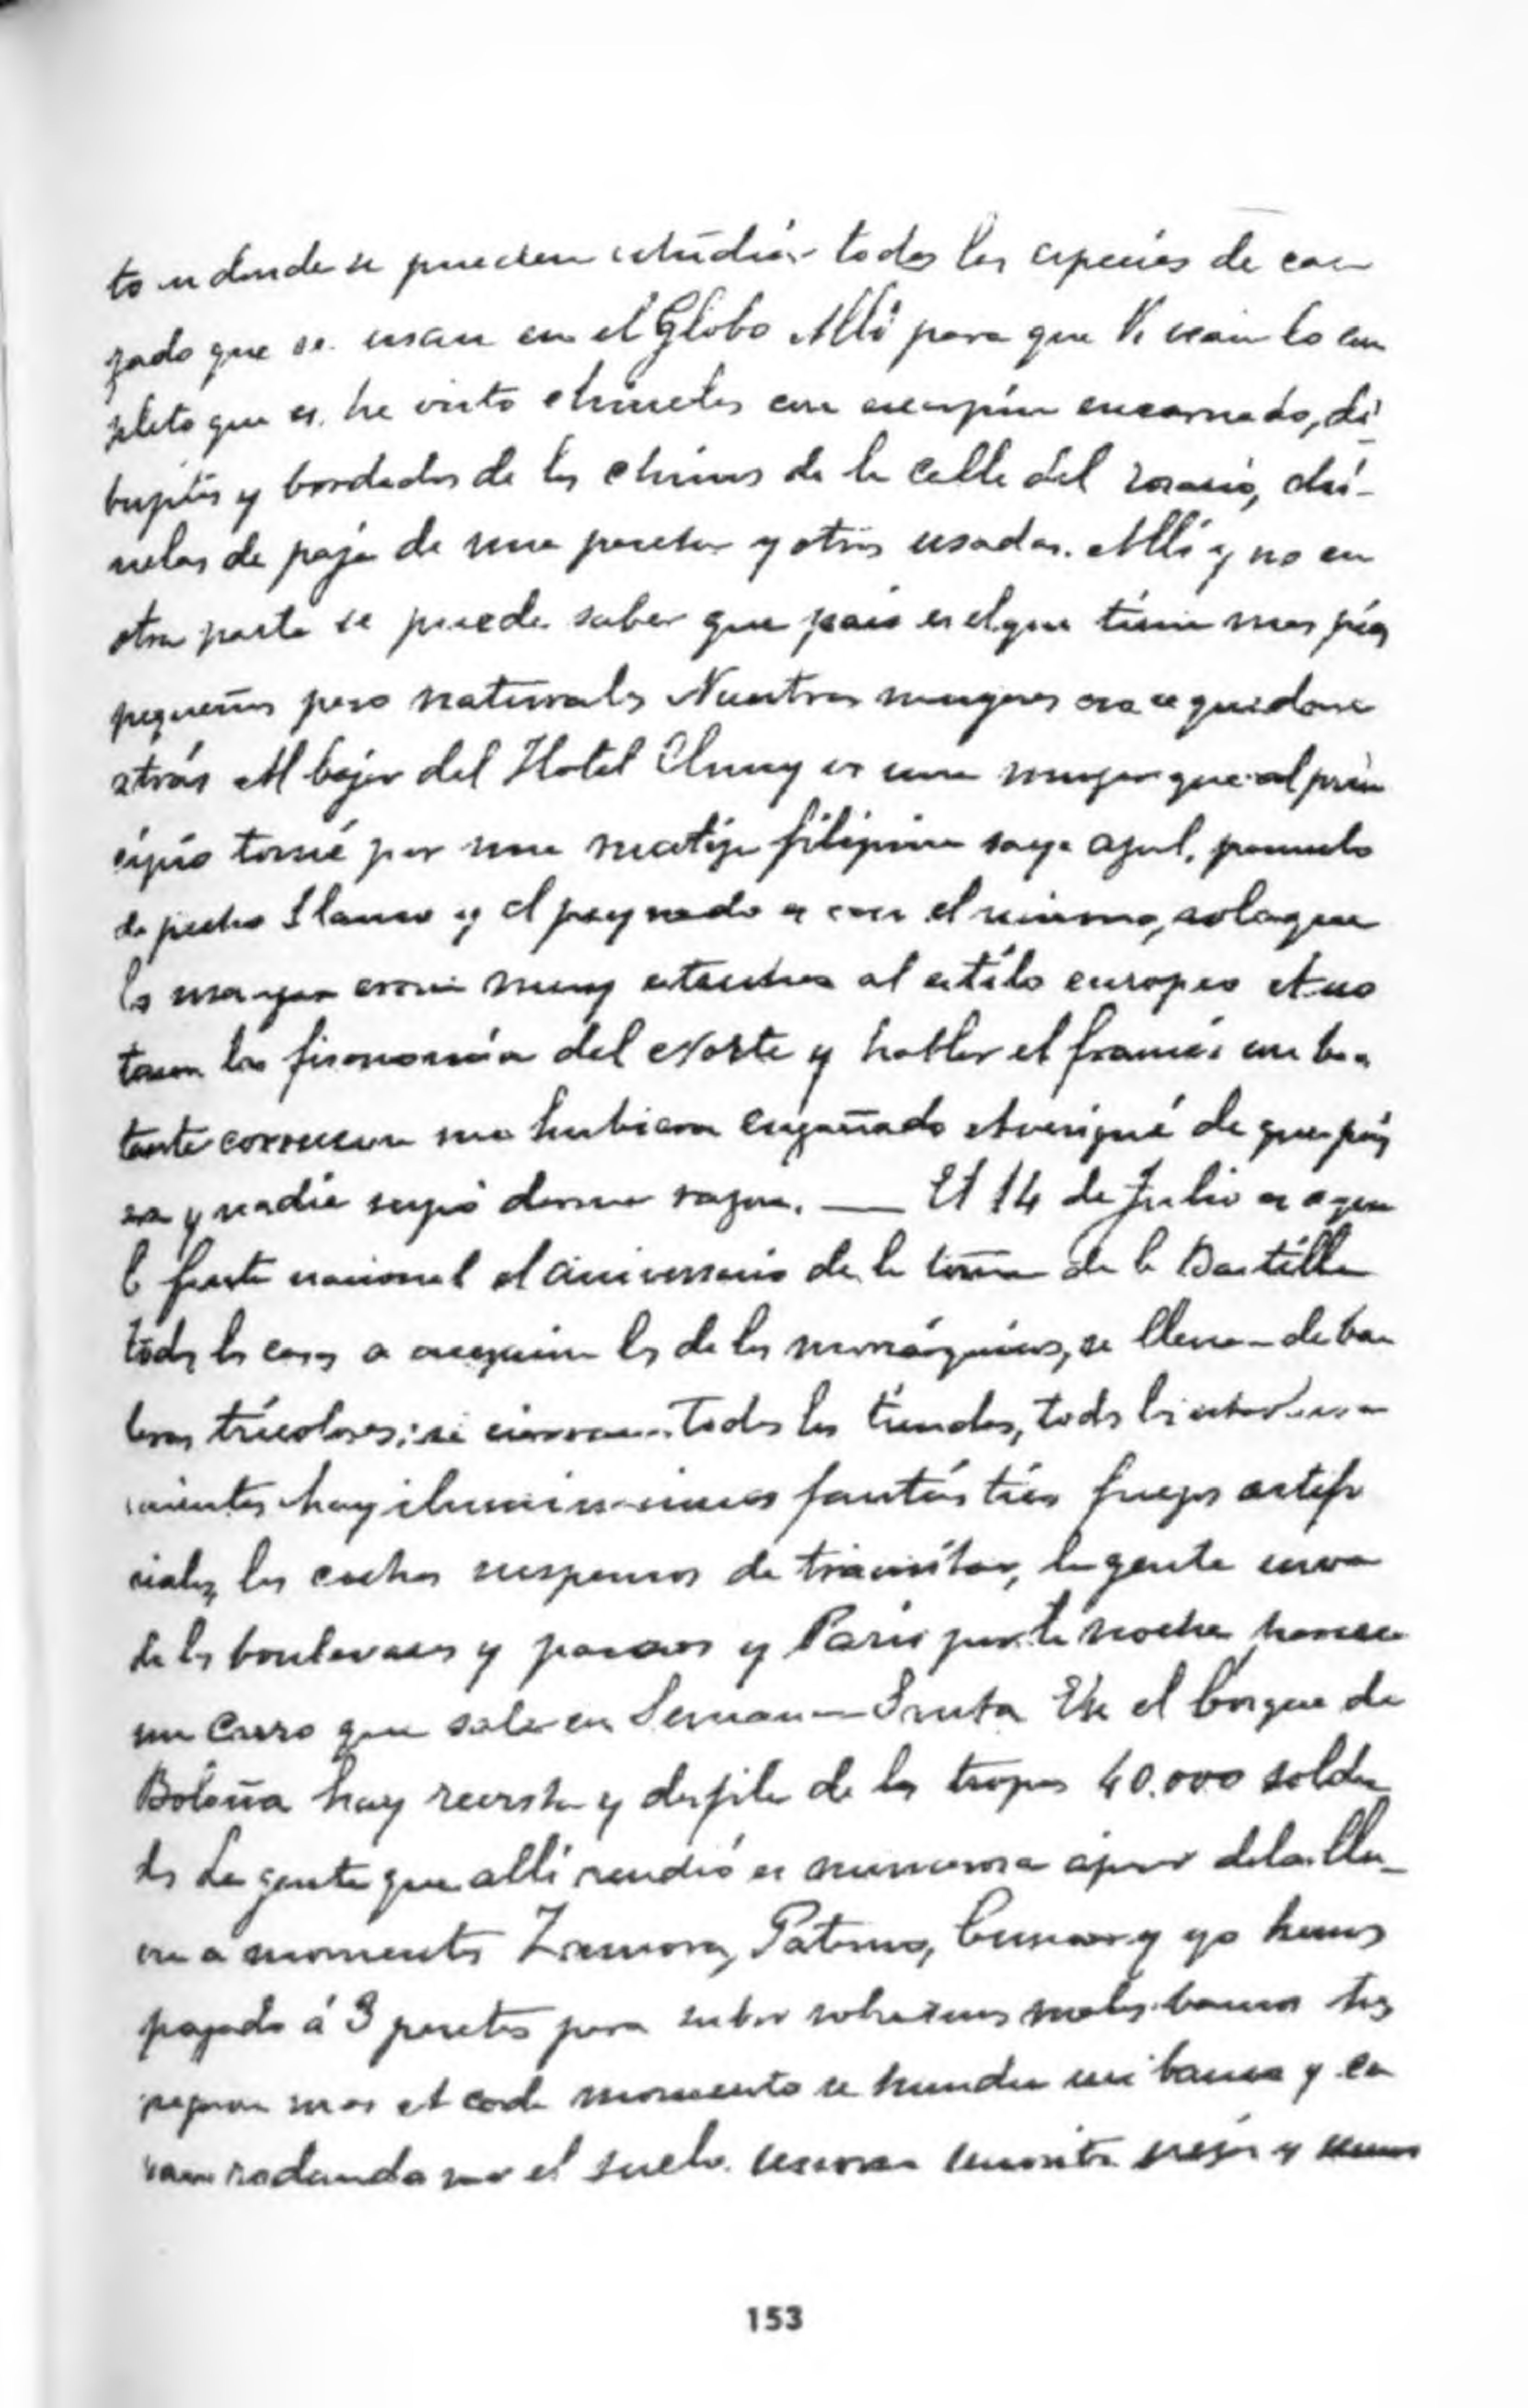 to en donde se pueden estudiar todas las especies de cal
zado que se usan en el Globo Allí para que Vs vean lo com
pleto que es, he visto chinelas con escarpín encarnado, di
bujitos y bordados de los chinos de la Calle del rosario, chi-
nelas de paja de una peseta y otras usadas. Allí y no en
otra parte se puede saber que pais es el que tiene mas pies
pequeños pero naturales Nuestras mugeres
atrás Al bajar del Hotel Cluny vi una muger que al prin
cipio tomé por una mestiza filipina saya azul, pañuelo
de pecho blanco y el peynado a con el mismo, solo que
las mangas eran muy estrechas al estilo europeo A no
tener la fisonomía del Norte y hablar el francés con bas
tante correccion me hubiera engañado Averigüé de que pais
era y nadie supo darme razon. — El 14 de Julio es aquí
la fiesta nacional el aniversario de la toma de la Bastilla
todas las casas a excepcion las de los monárquicos, se llenan de ban
deras tricolores; se cierran todas las tiendas, todos los estableci
mientos hay iluminaciones fantásticas fuegos artifi
ciales, los coches suspensos de transitar, la gente inva
de los boulevares y paseos y Paris por la noche parece
un Carro que sale en Semana Santa En el bosque de
Boloña hay revista y desfile de las tropas 40.000 solda
dos La gente que allí acudió es numerosa apesar de la llu-
via a momentos Zamora, Paterno, Cunanan y yo hemos
pagado á 3 pesetas para subir sobre unos malos bancos tres
pagaron mas A cada momento se hunde un banco y ca
van rodando por el suelo
153